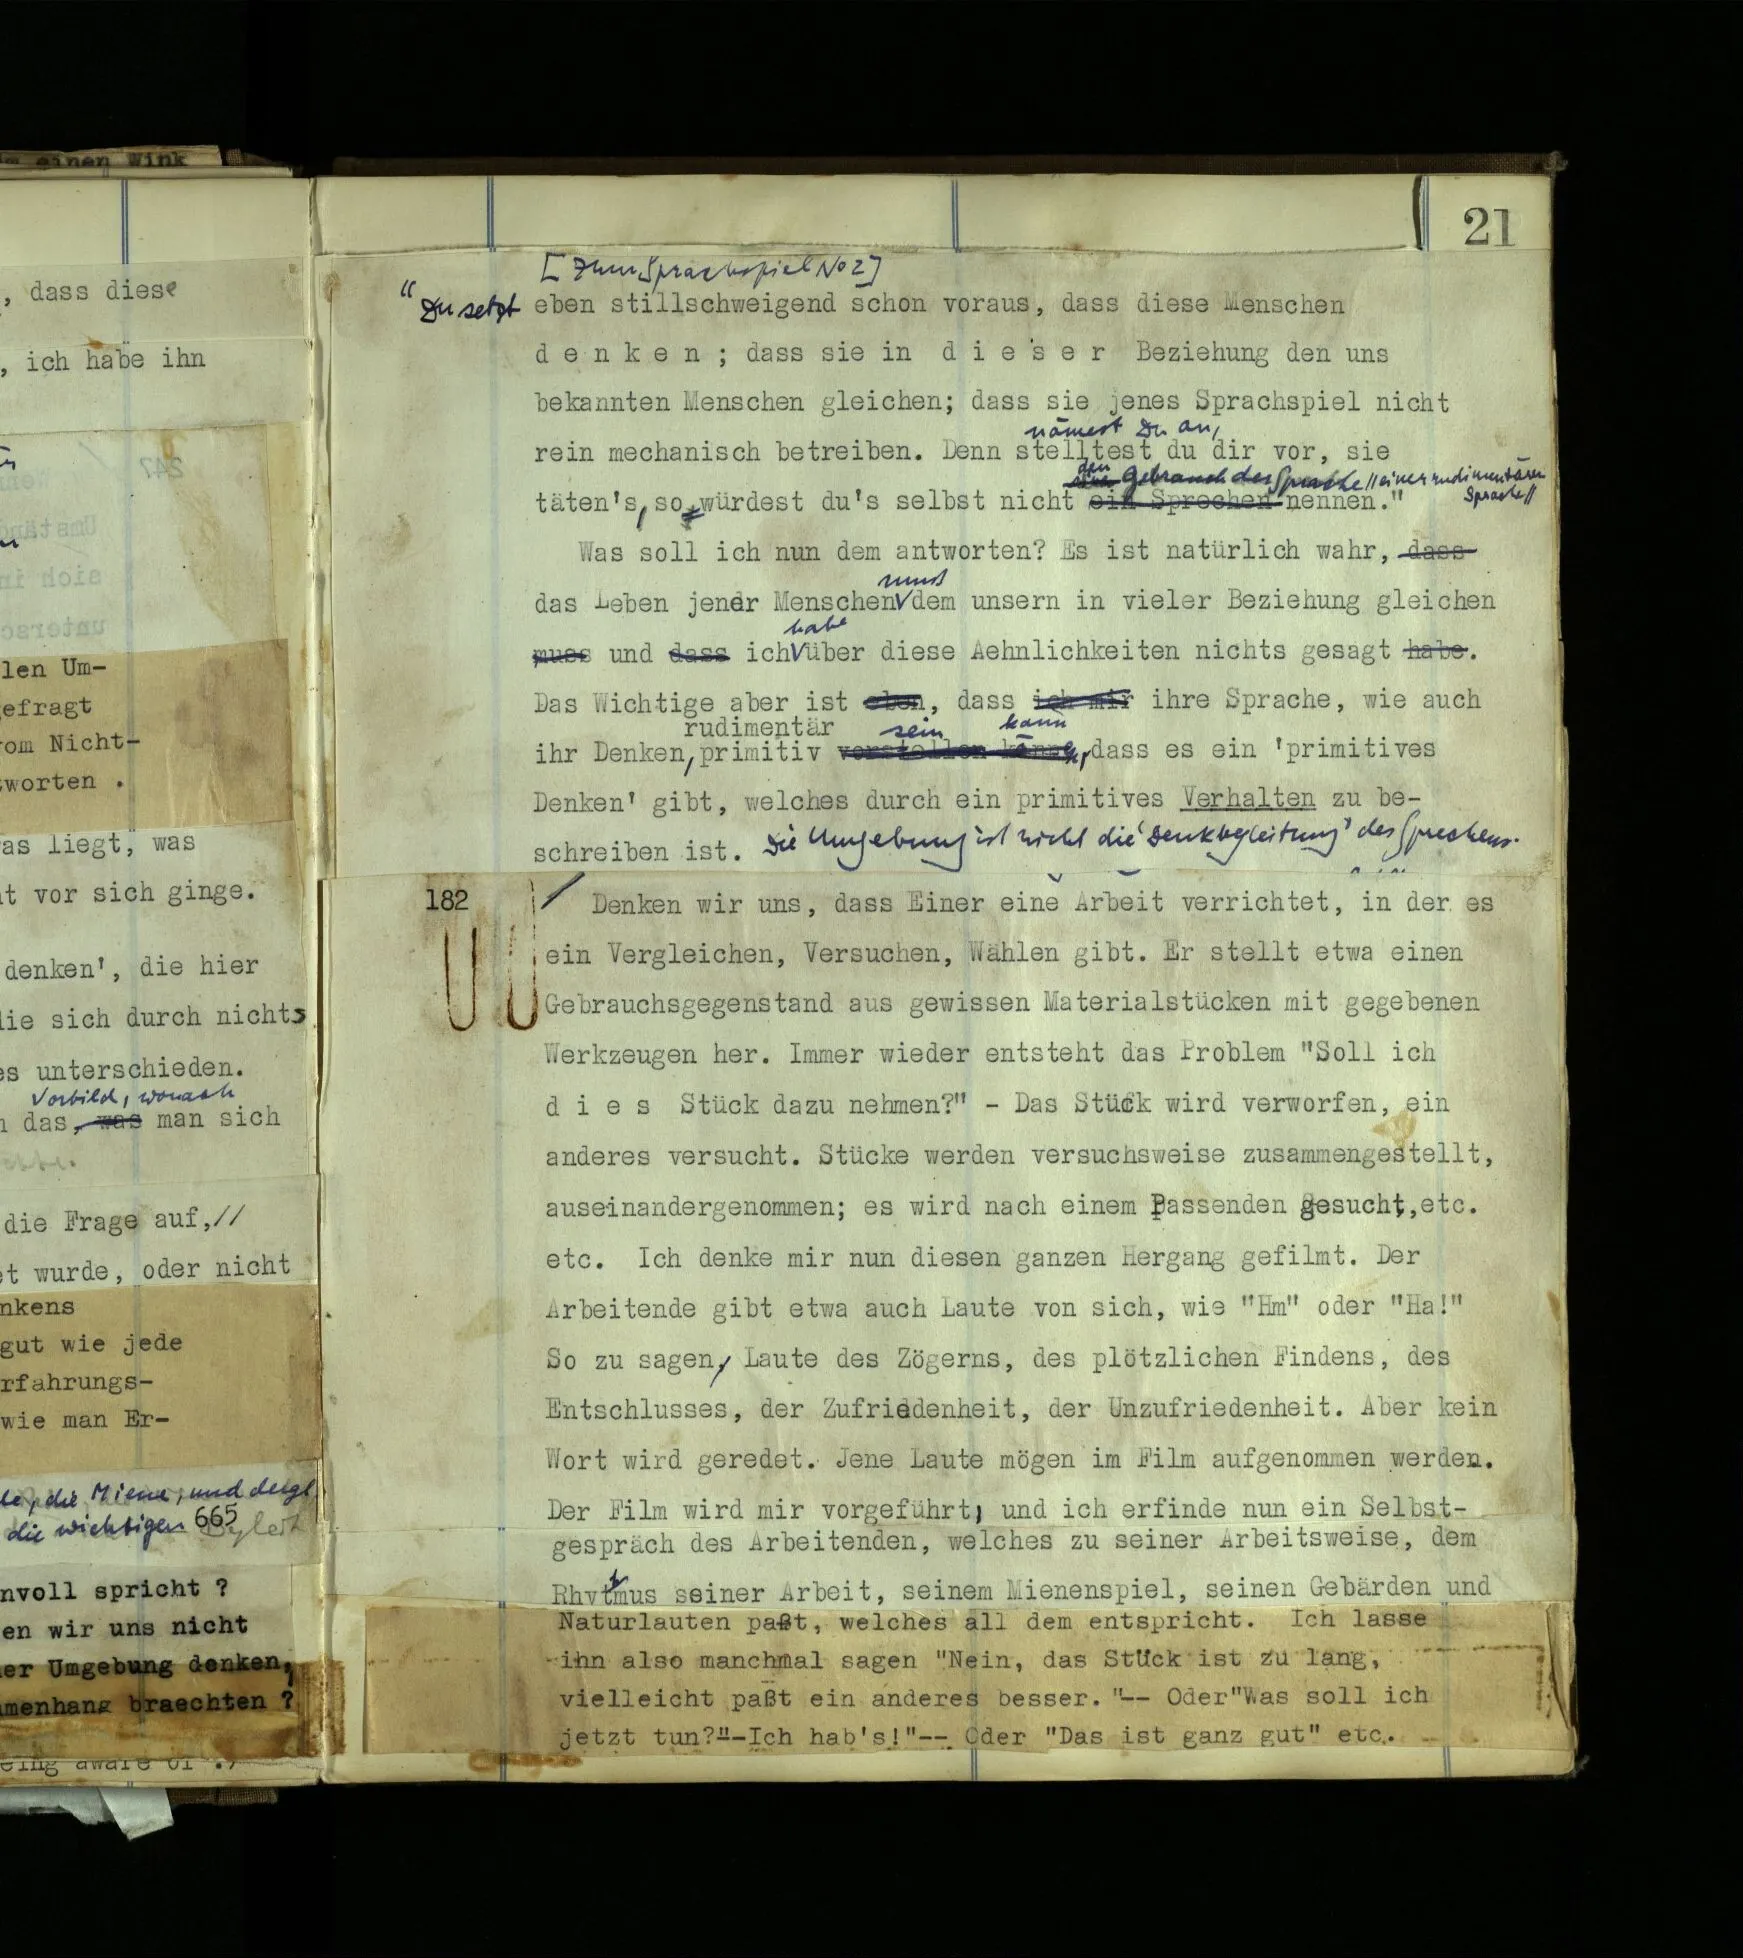 einen Wink
, dass diese
, ich habe ihn
247
len Um-
gefragt
vom Nicht-
tworten .
as liegt, was
t vor sich ginge.
denken', die hier
die sich durch nichts
es unterschieden.
Vorbild, wonach
das, was man sich
die Frage auf,//
et wurde, oder nicht
nkens
gut wie jede
rfahrungs-
wie man Er-
die Miene, und dergl.
die wichtigen 665
nvoll spricht ?
en wir uns nicht
er Umgebung denken,
mmenhang braechten ?
eing aware of .)
21
[Zum Sprachspiel No 2]
"Du setzt eben stillschweigend schon voraus, dass diese Menschen
d e n k e n ; dass sie in d i e s e r Beziehung den uns
bekannten Menschen gleichen; dass sie jenes Sprachspiel nicht
nämest Du an,
rein mechanisch betreiben. Denn stelltest du dir vor, sie
den Gebrauch der Sprache // einer rudimentären
Sprache //
täten's, so würdest du's selbst nicht ein Sprechen nennen."
Was soll ich nun dem antworten? Es ist natürlich wahr, dass
muss
das Leben jener Menschen dem unsern in vieler Beziehung gleichen
habe
muss und dass ich über diese Aehnlichkeiten nichts gesagt habe.
Das Wichtige aber ist eben, dass ich mir ihre Sprache, wie auch
rudimentär sein kann
ihr Denken, primitiv vorstellen könne, dass es ein 'primitives
Denken' gibt, welches durch ein primitives Verhalten zu be-
schreiben ist. Die Umgebung ist nicht die 'Denkbegleitung' des Sprechens.
182 / Denken wir uns, dass Einer eine Arbeit verrichtet, in der es
ein Vergleichen, Versuchen, Wählen gibt. Er stellt etwa einen
Gebrauchsgegenstand aus gewissen Materialstücken mit gegebenen
Werkzeugen her. Immer wieder entsteht das Problem "Soll ich
d i e s Stück dazu nehmen?" - Das Stück wird verworfen, ein
anderes versucht. Stücke werden versuchsweise zusammengestellt,
auseinandergenommen; es wird nach einem Passenden gesucht, etc.
etc. Ich denke mir nun diesen ganzen Hergang gefilmt. Der
Arbeitende gibt etwa auch Laute von sich, wie "Hm" oder "Ha!"
So zu sagen, Laute des Zögerns, des plötzlichen Findens, des
Entschlusses, der Zufriedenheit, der Unzufriedenheit. Aber kein
Wort wird geredet. Jene Laute mögen im Film aufgenommen werden.
Der Film wird mir vorgeführt; und ich erfinde nun ein Selbst-
gespräch des Arbeitenden, welches zu seiner Arbeitsweise, dem
Rhythmus seiner Arbeit, seinem Mienenspiel, seinen Gebärden und
Naturlauten paßt, welches all dem entspricht. Ich lasse
ihn also manchmal sagen "Nein, das Stück ist zu lang,
vielleicht paßt ein anderes besser."-- Oder"Was soll ich
jetzt tun?"--Ich hab's!"-- Oder "Das ist ganz gut" etc.